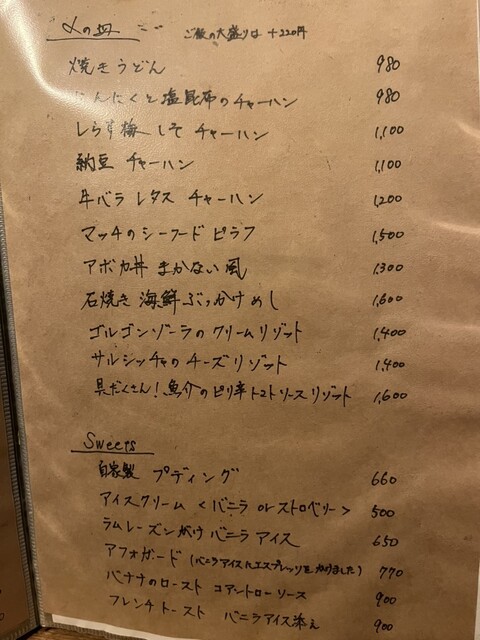 〆の皿 ご飯の大盛りは +220円
焼きうどん 980
にんにくと塩昆布のチャーハン 980
しらす梅しそ チャーハン 1,100
納豆 チャーハン 1,100
牛バラ レタス チャーハン 1,200
マッチのシーフード ピラフ 1,500
アボカ丼 まかない風 1,300
石焼き 海鮮ぶっかけめし 1,600
ゴルゴンゾーラのクリームリゾット 1,400
サルシッチャのチーズリゾット 1,400
具だくさん!魚介のピリ辛トマトソースリゾット 1,600
Sweets
自家製 プディング 660
アイスクリーム <バニラ or ストロベリー> 500
ラムレーズンがけ バニラアイス 650
アフォガード (バニラアイスにエスプレッソをかけました) 770
バナナのロースト コアントローソース 900
フレンチトースト バニラアイス添え 900